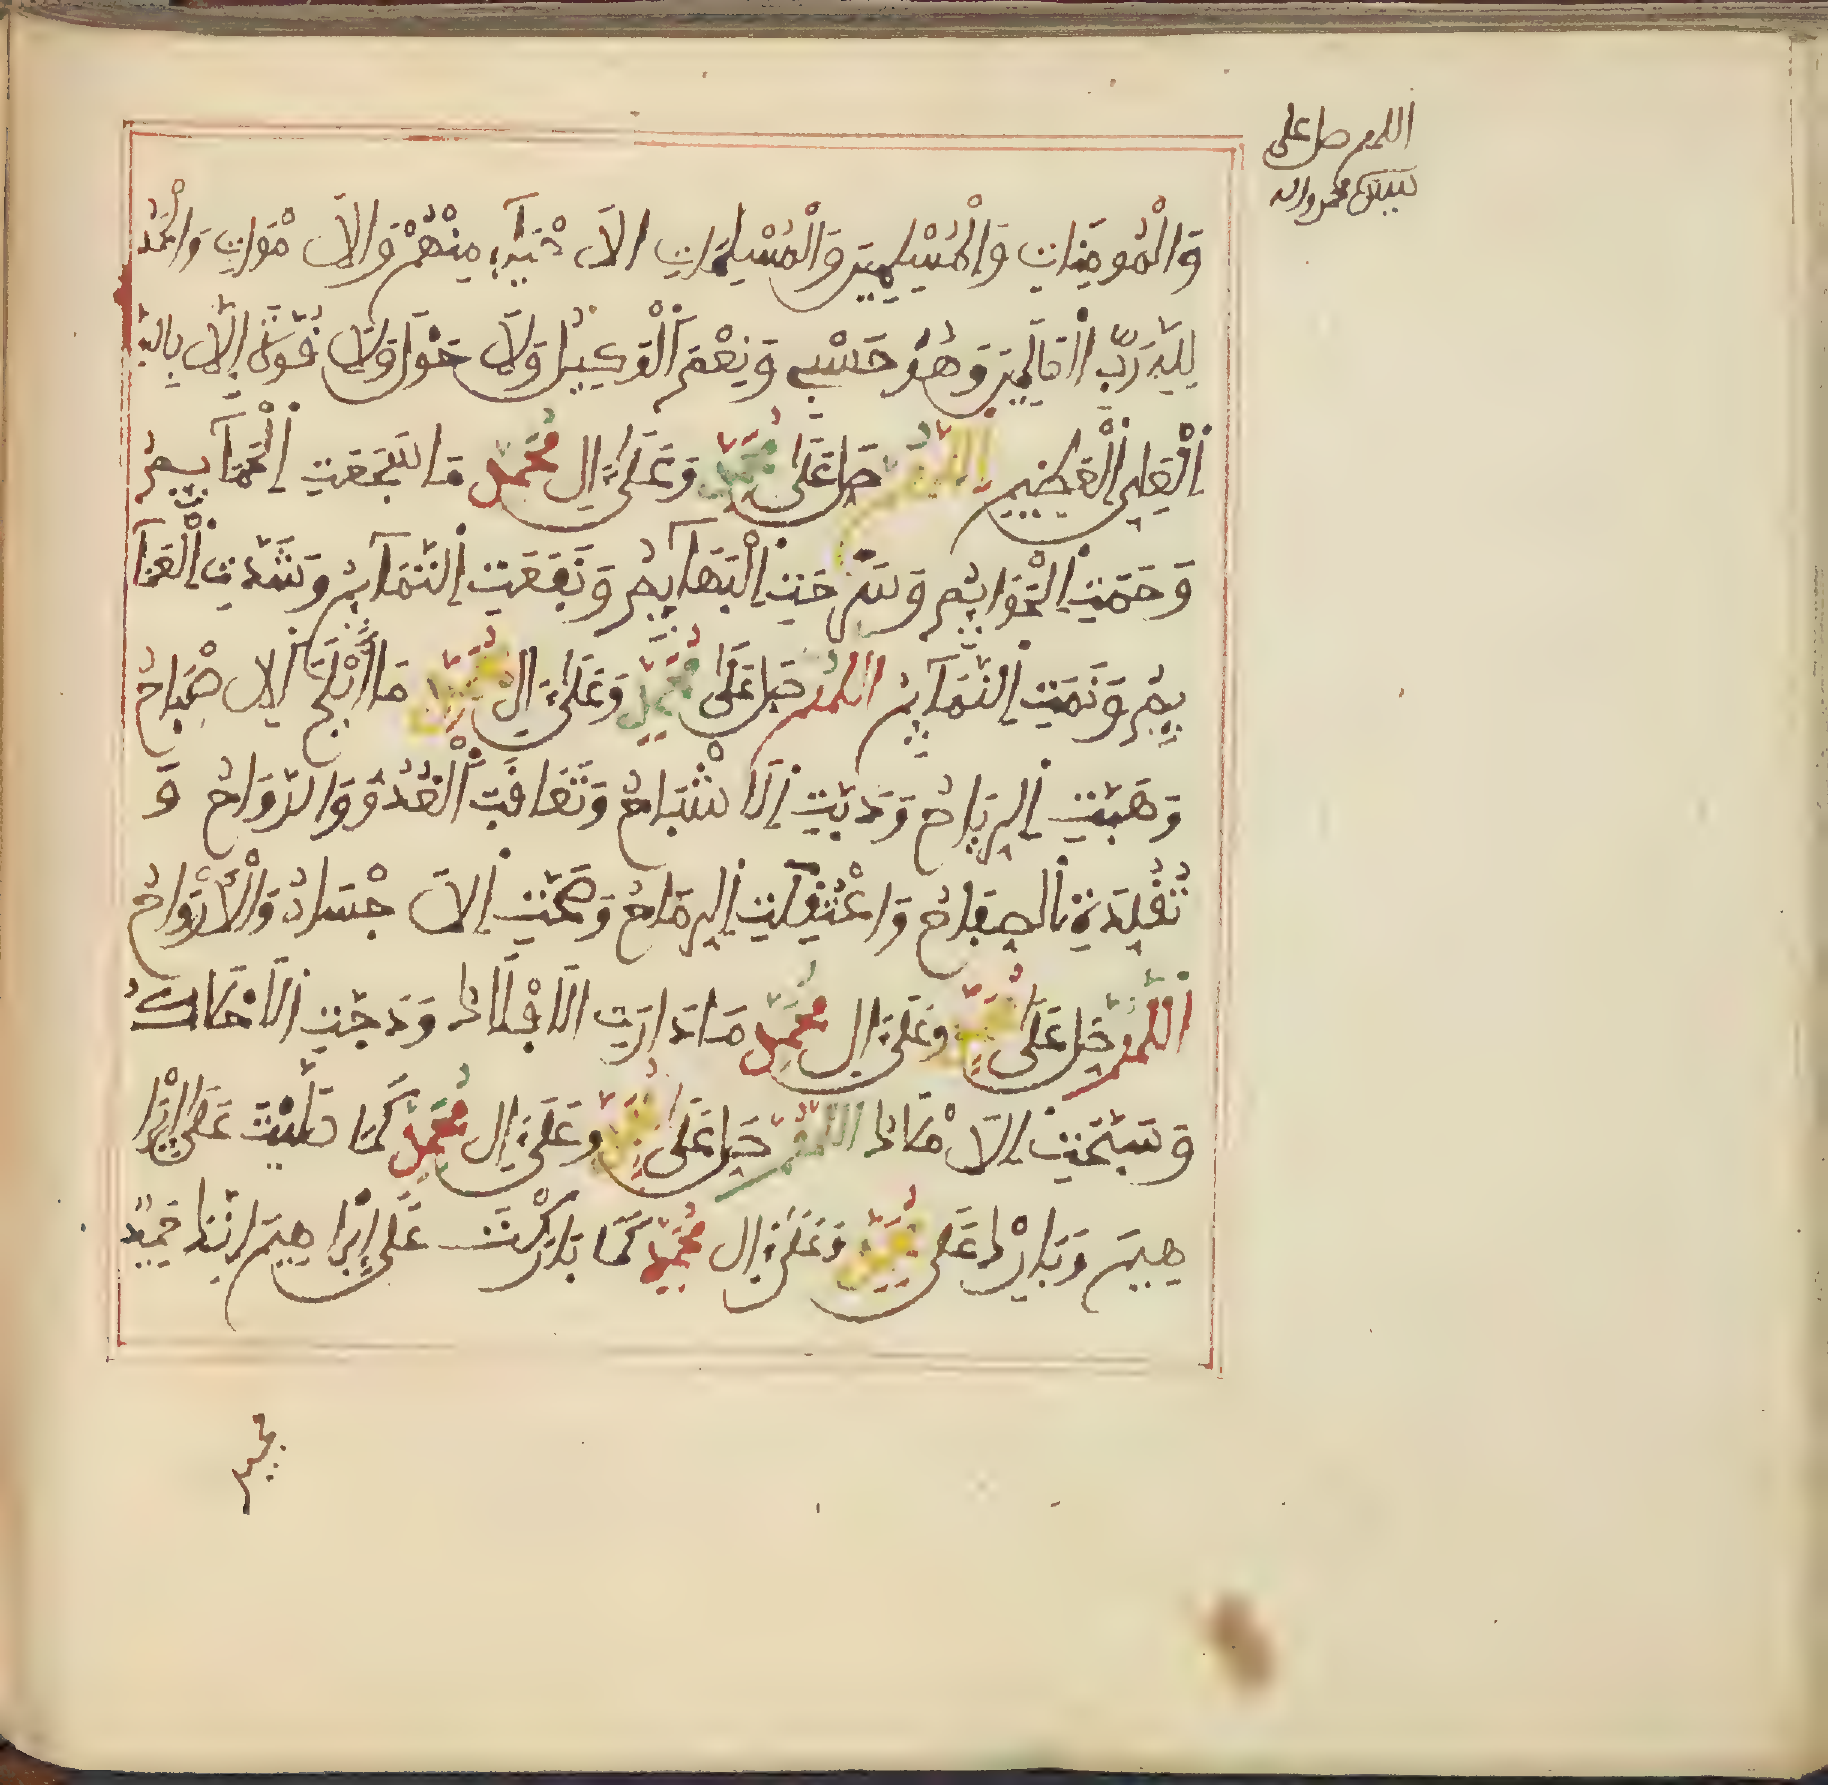 اللهم صل على
سيدنا محمد واله
وَالْمُومِنَاتِ وَالْمُسْلِمِينَ وَالْمُسْلِمَاتِ الَاحْيَآءِ مِنْهُمْ وَالَامْوَاتِ وَالْحَمْدُ
لِلهِ رَبِّ الْعَالَمِينَ وَهُوَ حَسْبِي وَنِعْمَ الْوَكِيلُ وَلَا حَوْلَ وَلَا قُوَّةَ إِلَّا بِاللهِ
الْعَلِيِّ الْعَظِيمِ اللَّهُمَّ صَلِّ عَلَى مُحَمَّدٍ وَعَلَى ءَالِ مُحَمَّدٍ مَا سَجَعَتِ الْحَمَآيِمُ
وَحَمَتِ الْحَوَايِمُ وَسَرَحَتِ الْبَهَآيِمُ وَنَفَعَتِ التَّمَآيِمُ وَشُدَّتِ الْعَمَآ
يِمُ وَنَمَتِ النَّمَآيِمُ اللَّهُمَّ صَلِّ عَلَى مُحَمَّدٍ وَعَلَى ءَالِ مُحَمَّدٍ مَا أَبْلَجَ الِاصْبَاحُ
وَهَبَّتِ الرِّيَاحُ وَدَبَّتِ الَاشْبَاحُ وَتَعَاقَبَ الْغُدُوُّ وَالرَّوَاحُ وَ
تُقُلِّدَتِ الصِّفَاحُ وَاعْتُقِلَتِ الرِّمَاحُ وَصَحَّتِ الَاجْسَادُ وَالْأَرْوَاحُ
اللَّهُمَّ صَلِّ عَلَى مُحَمَّدٍ وَعَلَى ءَالِ مُحَمَّدٍ مَا دَارَتِ الَافْلَاكُ وَدَجَتِ الَاحْلَاكُ
وَسَبَّحَتِ الَامْلَاكُ اللَّهُمَّ صَلِّ عَلَى مُحَمَّدٍ وَعَلَى ءَالِ مُحَمَّدٍ كَمَا صَلَّيْتَ عَلَى إِبْرَا
هِيمَ وَبَارِكْ عَلَى مُحَمَّدٍ وَعَلَى ءَالِ مُحَمَّدٍ كَمَا بَارَكْتَ عَلَى إِبْرَاهِيمَ إِنَّكَ حَمِيدٌ
مجيد